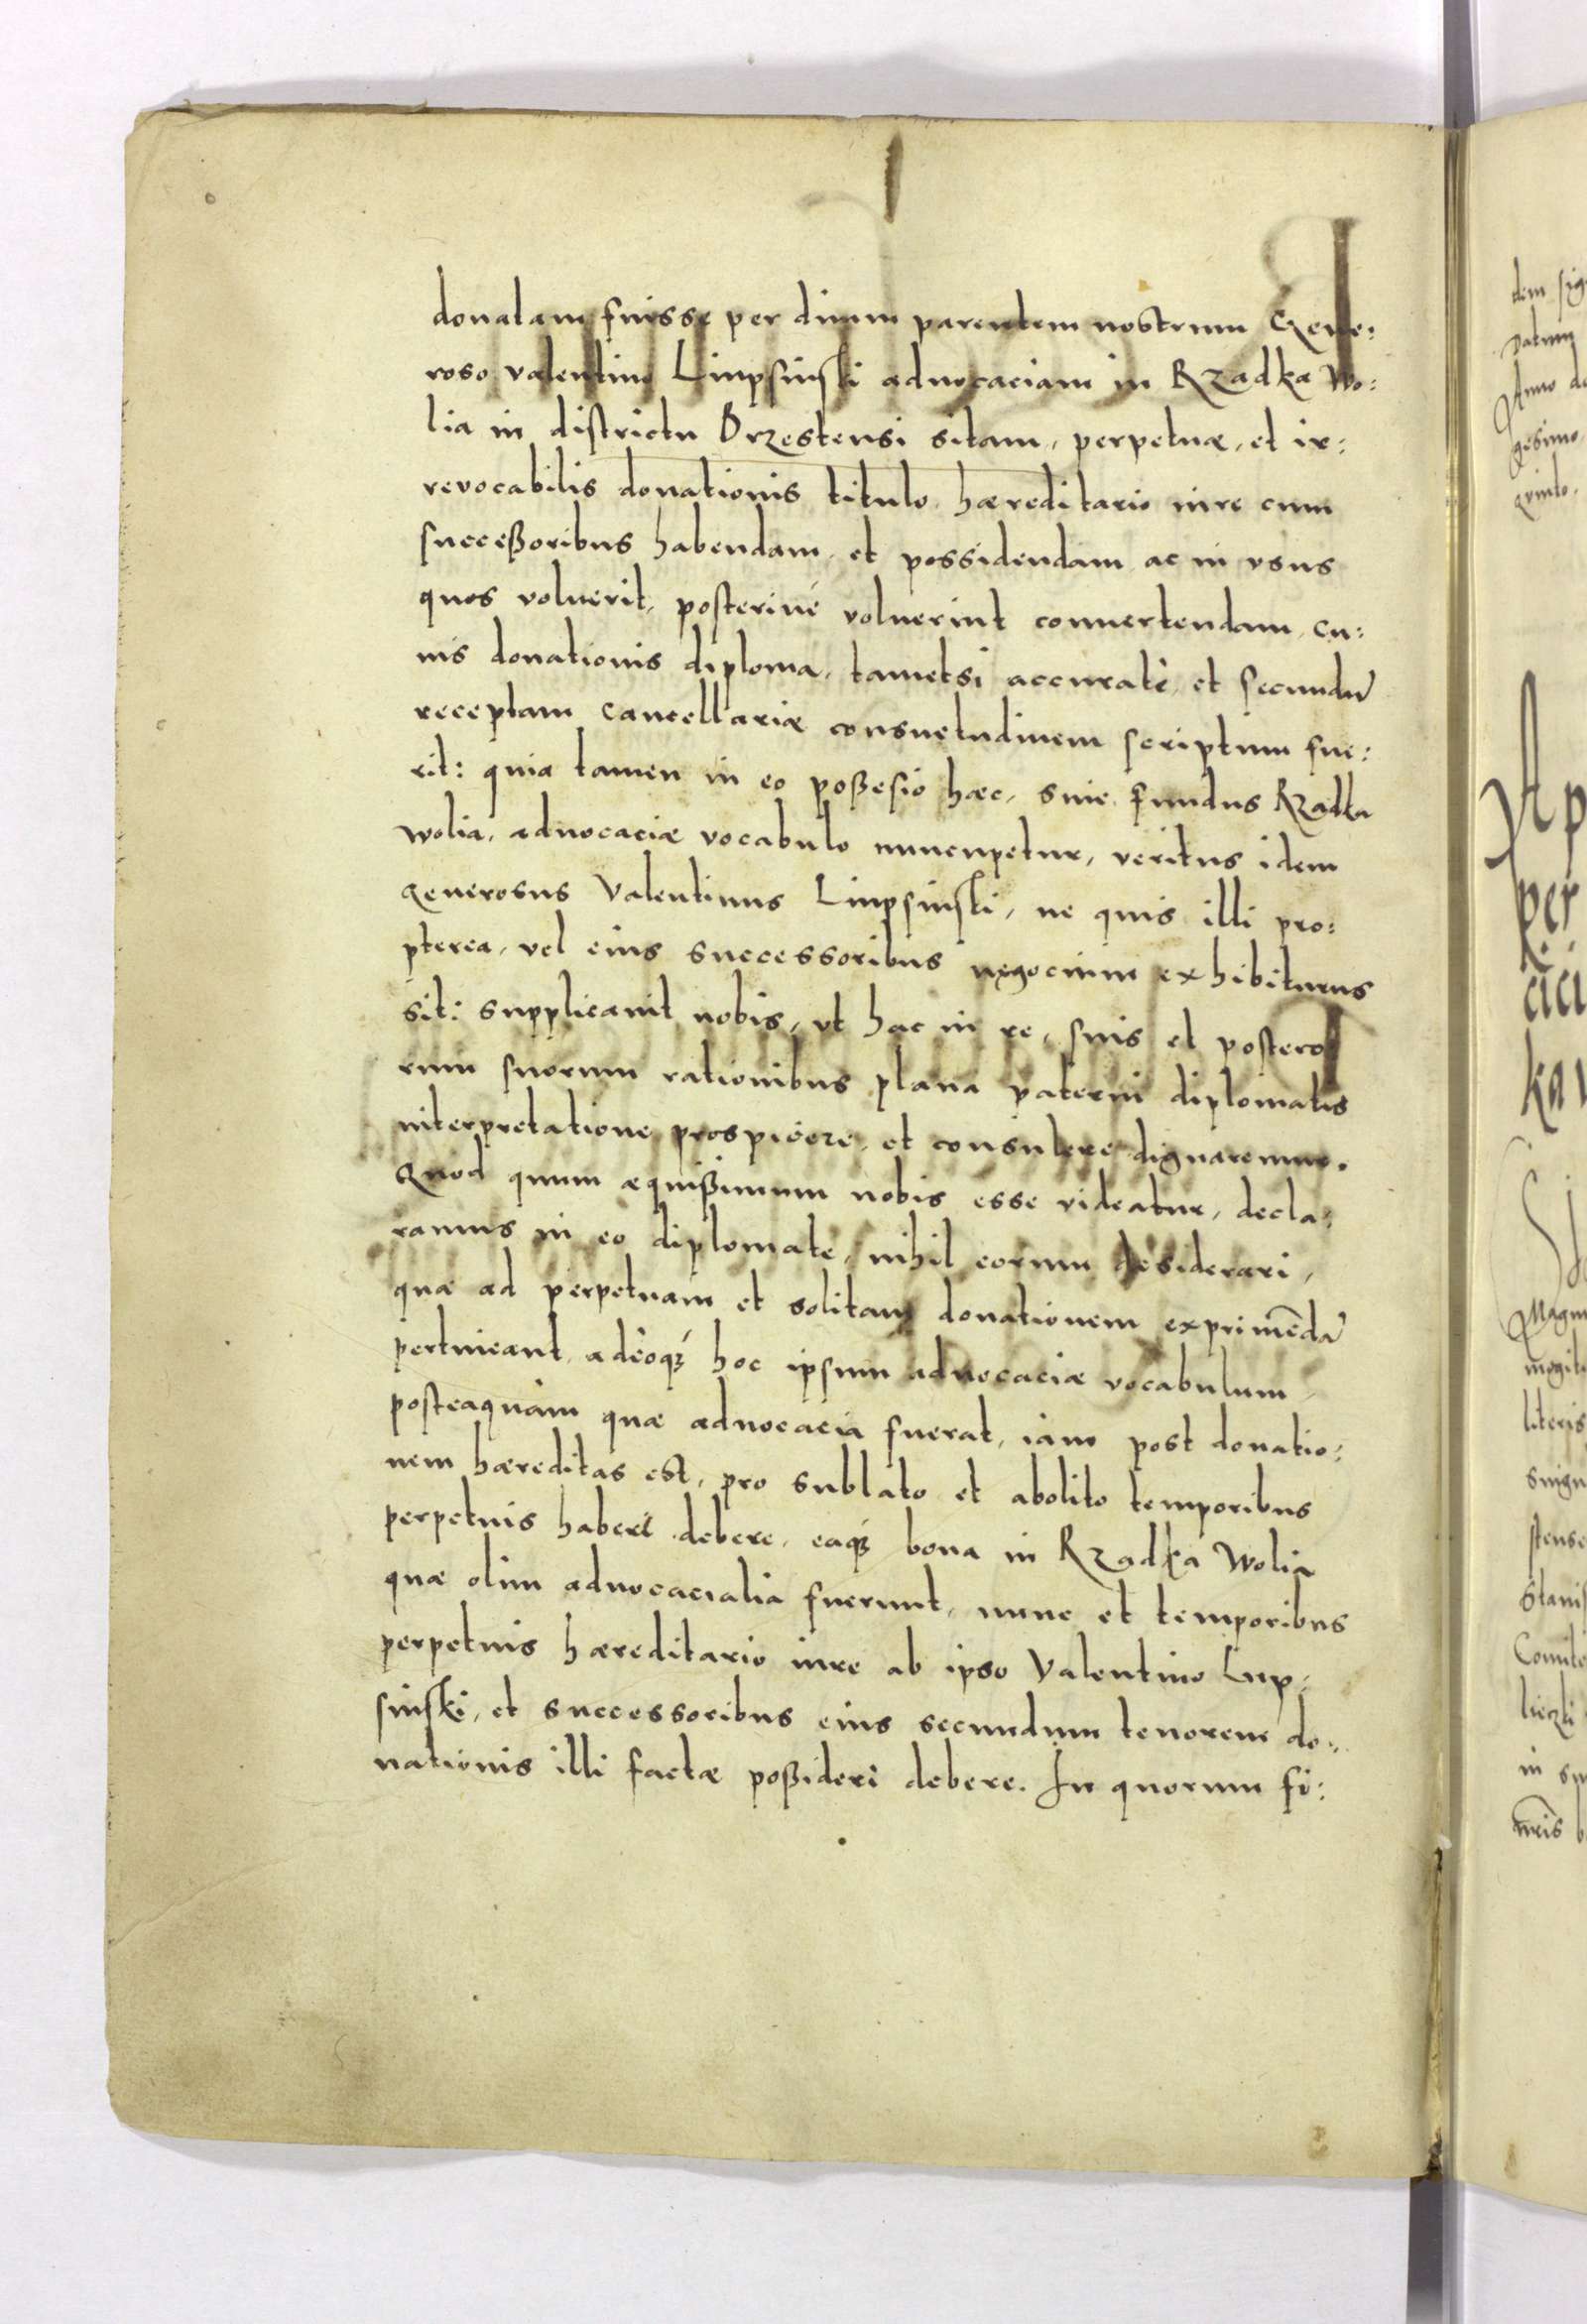 donatam fuisse per diuum parentem nostrum Gene:
roso Valentino Lmpsinski aduocaciam in Rzadka Wo:
lia in districtu Brzestensi sitam, perpetuæ, et ir:
revocabilis donationis titulo hæreditario iure cum
succeßoribus habendam et possidendam ac in vsus
quos voluerit, posteriué voluerint conuertendam, cu:
ius donationis diploma, tametsi accuratè et secundũ
receptam Cancellariæ consuetudinem scriptum fue:
rit: quia tamen in eo poßesio hæc, siue fundus Rzadka
Wolia, aduocaciæ vocabulo nuncupetur, veritus idem
generosus Valentinus Lmpsinski, ne quis illi pro:
pterea, vel eius successoribus negocium exhibiturus
sit: supplicauit nobis, vt hac in re, suis et postero
rum suorum rationibus plana paterni diplomatis
interpretatione prospicere, et consulere dignaremur.
Quod quum æquißimum nobis esse videatur, decla:
ramus in eo diplomate, nihil eorum desiderari,
quæ ad perpetuam et solitam donationem exprimẽdã
pertineant, adeoq́ hoc ipsum aduocaciæ vocabulum,
posteaquàm quæ aduocacia fuerat, iam post donatio:
nem hæreditas est, pro sublato et abolito temporibus
perpetuis haberi debere, eaq́ bona in Rzadka Wolia
quæ olim aduocacialia fuerunt, nunc et temporibus
perpetuis hæreditario iure ab ipso Valentino Lmp:
sinski, et successoribus eius secundum tenorem do:
nationis illi factæ poßideri debere. In quorum fi:
tem sig
Datum
Anno do
gesimo
qvinto.
Ap
per
cici
Magni
literis
stense
in su